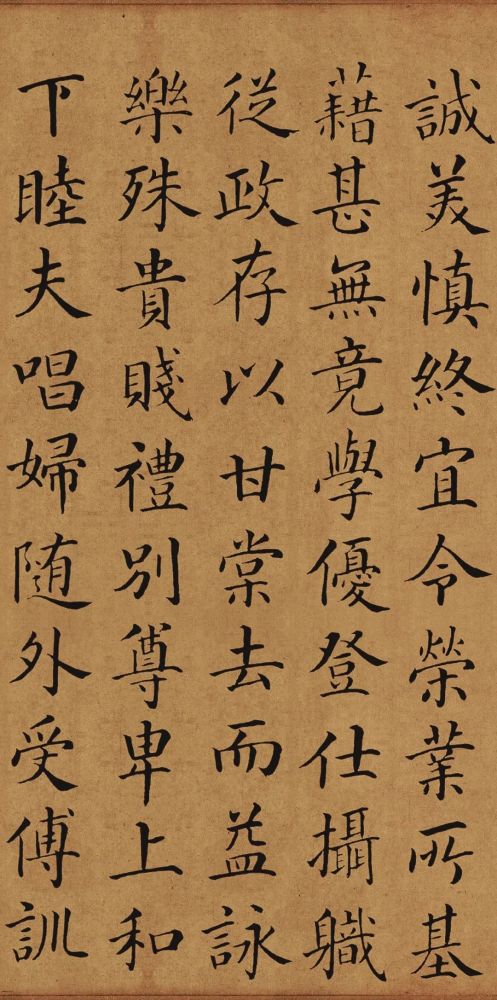 誠美慎終宜令榮業所基
藉甚無竟學優登仕攝職
從政存以甘棠去而益詠
樂殊貴賤禮別尊卑上和
下睦夫唱婦随外受傅訓